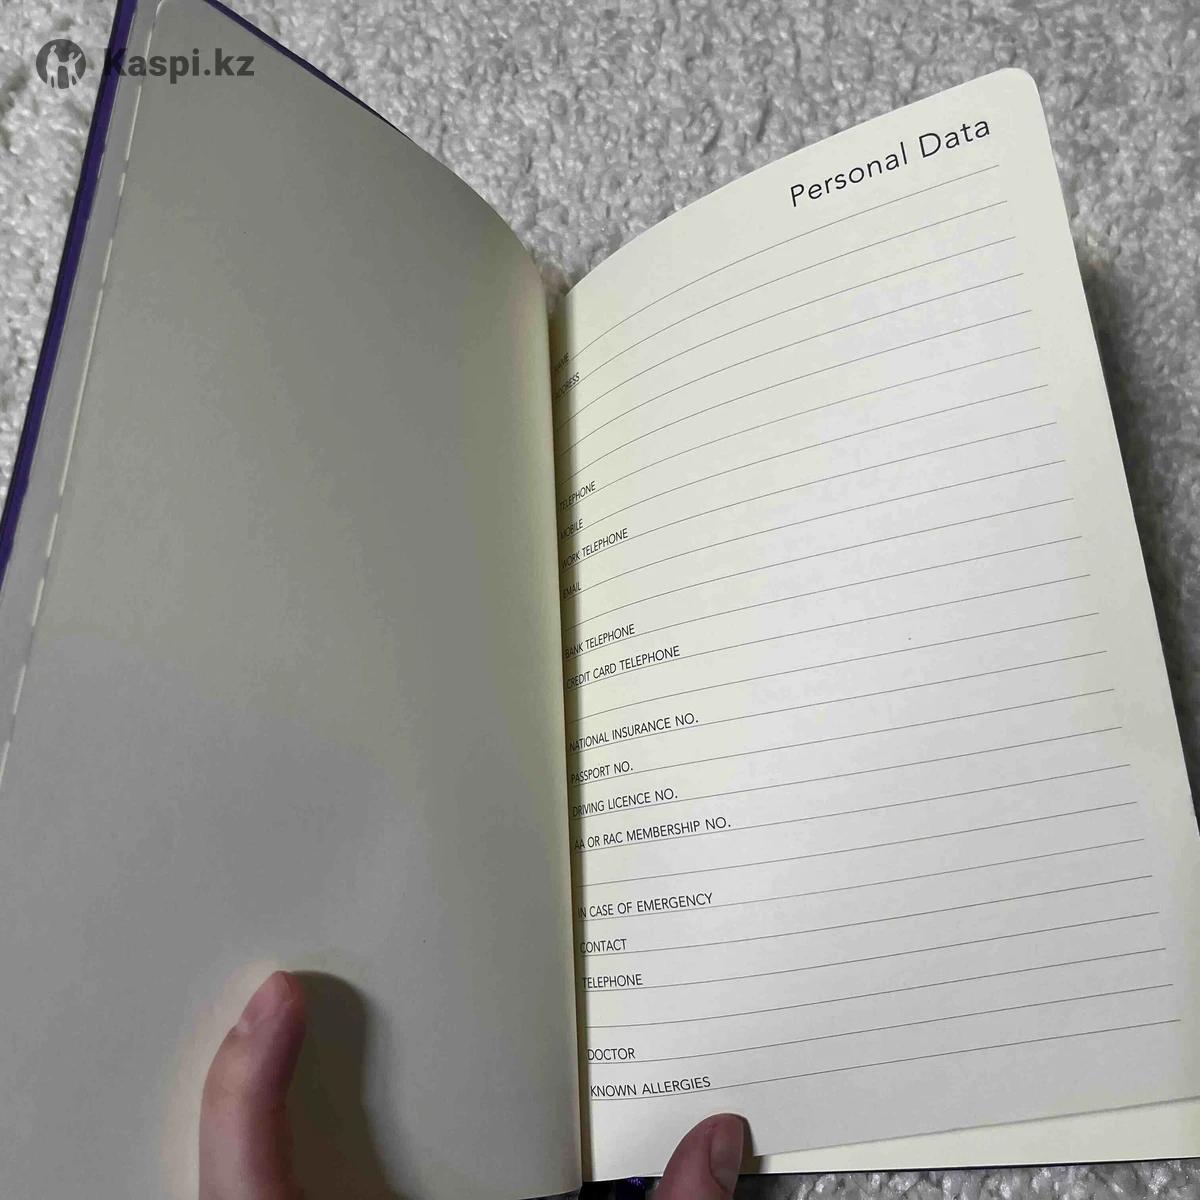 Kaspi.kz
Personal Data
NAME
ADDRESS
TELEPHONE
MOBILE
WORK TELEPHONE
EMAIL
BANK TELEPHONE
CREDIT CARD TELEPHONE
NATIONAL INSURANCE NO.
PASSPORT NO.
DRIVING LICENCE NO.
AA OR RAC MEMBERSHIP NO.
IN CASE OF EMERGENCY
CONTACT
TELEPHONE
DOCTOR
KNOWN ALLERGIES